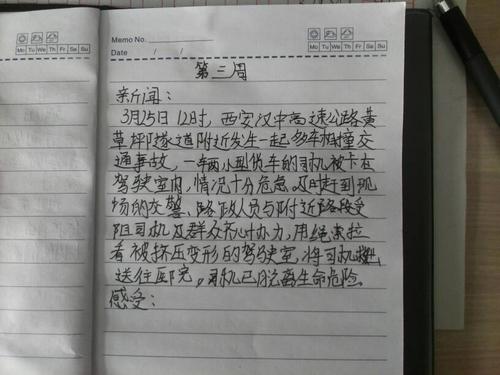 Mo Tu We Th Fr Sa Su
Memo No.
Date / /
Mo Tu We Th Fr Sa Su
第三周
新闻：
3月25日12时，西安汉中高速公路黄
草坪隧道附近发生一起多车相撞交
通事故，一辆小型货车的司机被卡在
驾驶室内，情况十分危急。及时赶到现
场的交警、路政人员与附近路段受
阻司机及群众齐心办力，用绳索拉
着被挤压变形的驾驶室，将司机救出
送往医完。司机已脱离生命危险。
感受：